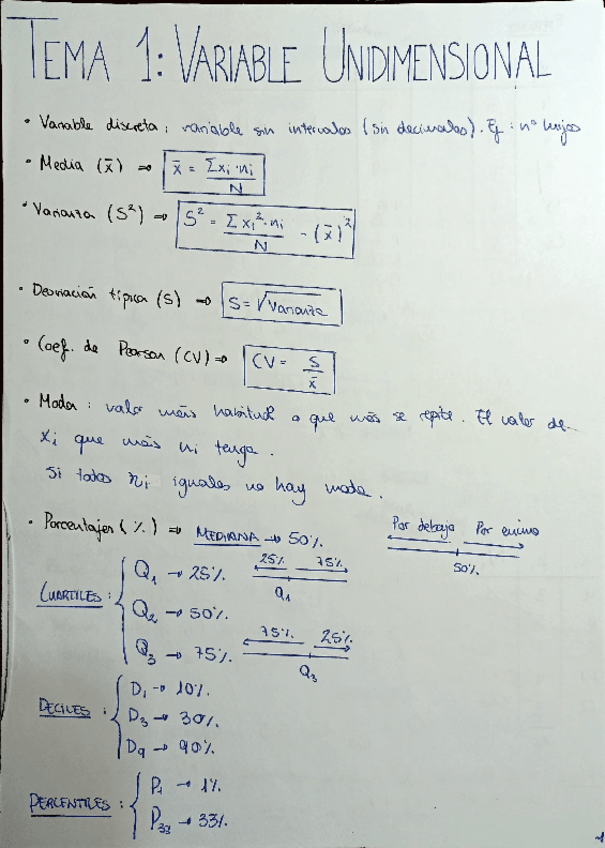 TEMA 1: VARIABLE UNIDIMENSIONAL
• Variable discreta: variable sin intervalos (sin decimales). Ej: nº hijos
• Media (x̄) ⇒ x̄ = Σxi·ni / N
• Varianza (S²) ⇒ S² = Σxi²·ni / N - (x̄)²
• Desviación típica (S) ⇒ S = √Varianza
• Coef. de Pearson (CV) ⇒ CV = S / x̄
• Moda: valor más habitual o que más se repite. El valor de
xi que más ni tenga.
Si todos ni iguales no hay moda.
• Porcentajes (%) ⇒ MEDIANA → 50%
Por debajo Por encima
50%
CUARTILES:
Q1 → 25%
25% 75%
Q1
Q2 → 50%
Q3 → 75%
75% 25%
Q3
DECILES:
D1 → 10%
D3 → 30%
D9 → 90%
PERCENTILES:
P1 → 1%
P33 → 33%